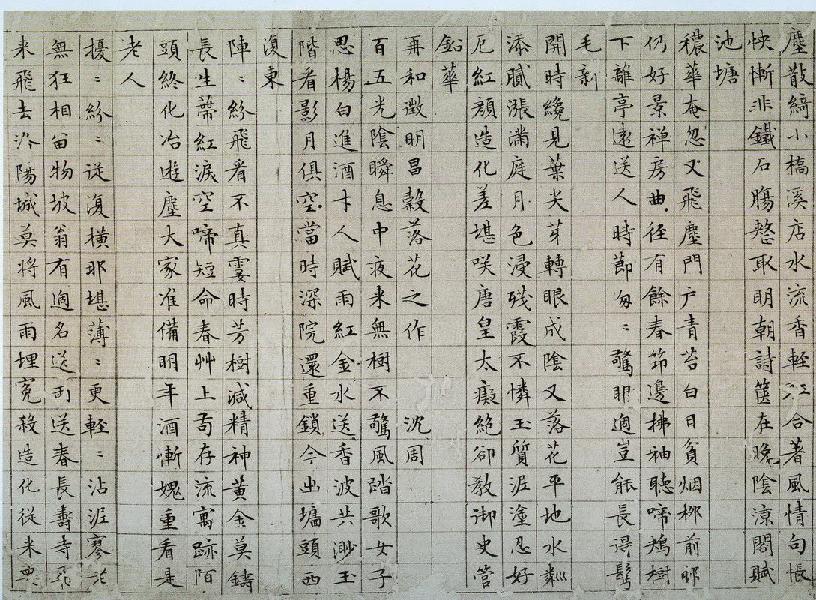 塵散綺小橋溪店水流香輕紅合著風情句悵
怏慚非鐵石腸愁取明朝詩篋在晚陰涼閣賦
池塘
穠華奄忽又飛塵門戶青苔白日貧烟柳前郵
仍好景禪房曲徑有餘春笻邊拂袖聽啼鴂樹
下離亭遠送人時節匆〻驚耶過豈能長得鬢
毛新
開時纔見葉尖芽轉眼成陰又落花平地水粼
添膩漲滿庭月色浸殘霞不憐玉質泥塗忍好
厄紅顏造化差堪咲唐皇太癡絕卻教御史管
鉛華
再和徵明昌穀落花之作 沈周
百五光陰瞬息中夜來無樹不驚風踏歌女子
思楊白進酒才人賦雨紅金水送香波共渺玉
階看影月俱空當時深院還重鎖今出墻頭西
復東
陣〻紛飛看不真霎時芳樹減精神黃金莫鑄
長生蒂紅淚空啼短命春艸上苟存流寓跡陌
頭終化冶遊塵大家准備明年酒慚媿重看是
老人
擾〻紛〻從復橫那堪薄〻更輕〻沾泥寥老
無狂相留物坡翁有過名送雨送春長壽寺飛
來飛去洛陽城莫將風雨埋冤殺造化從來要